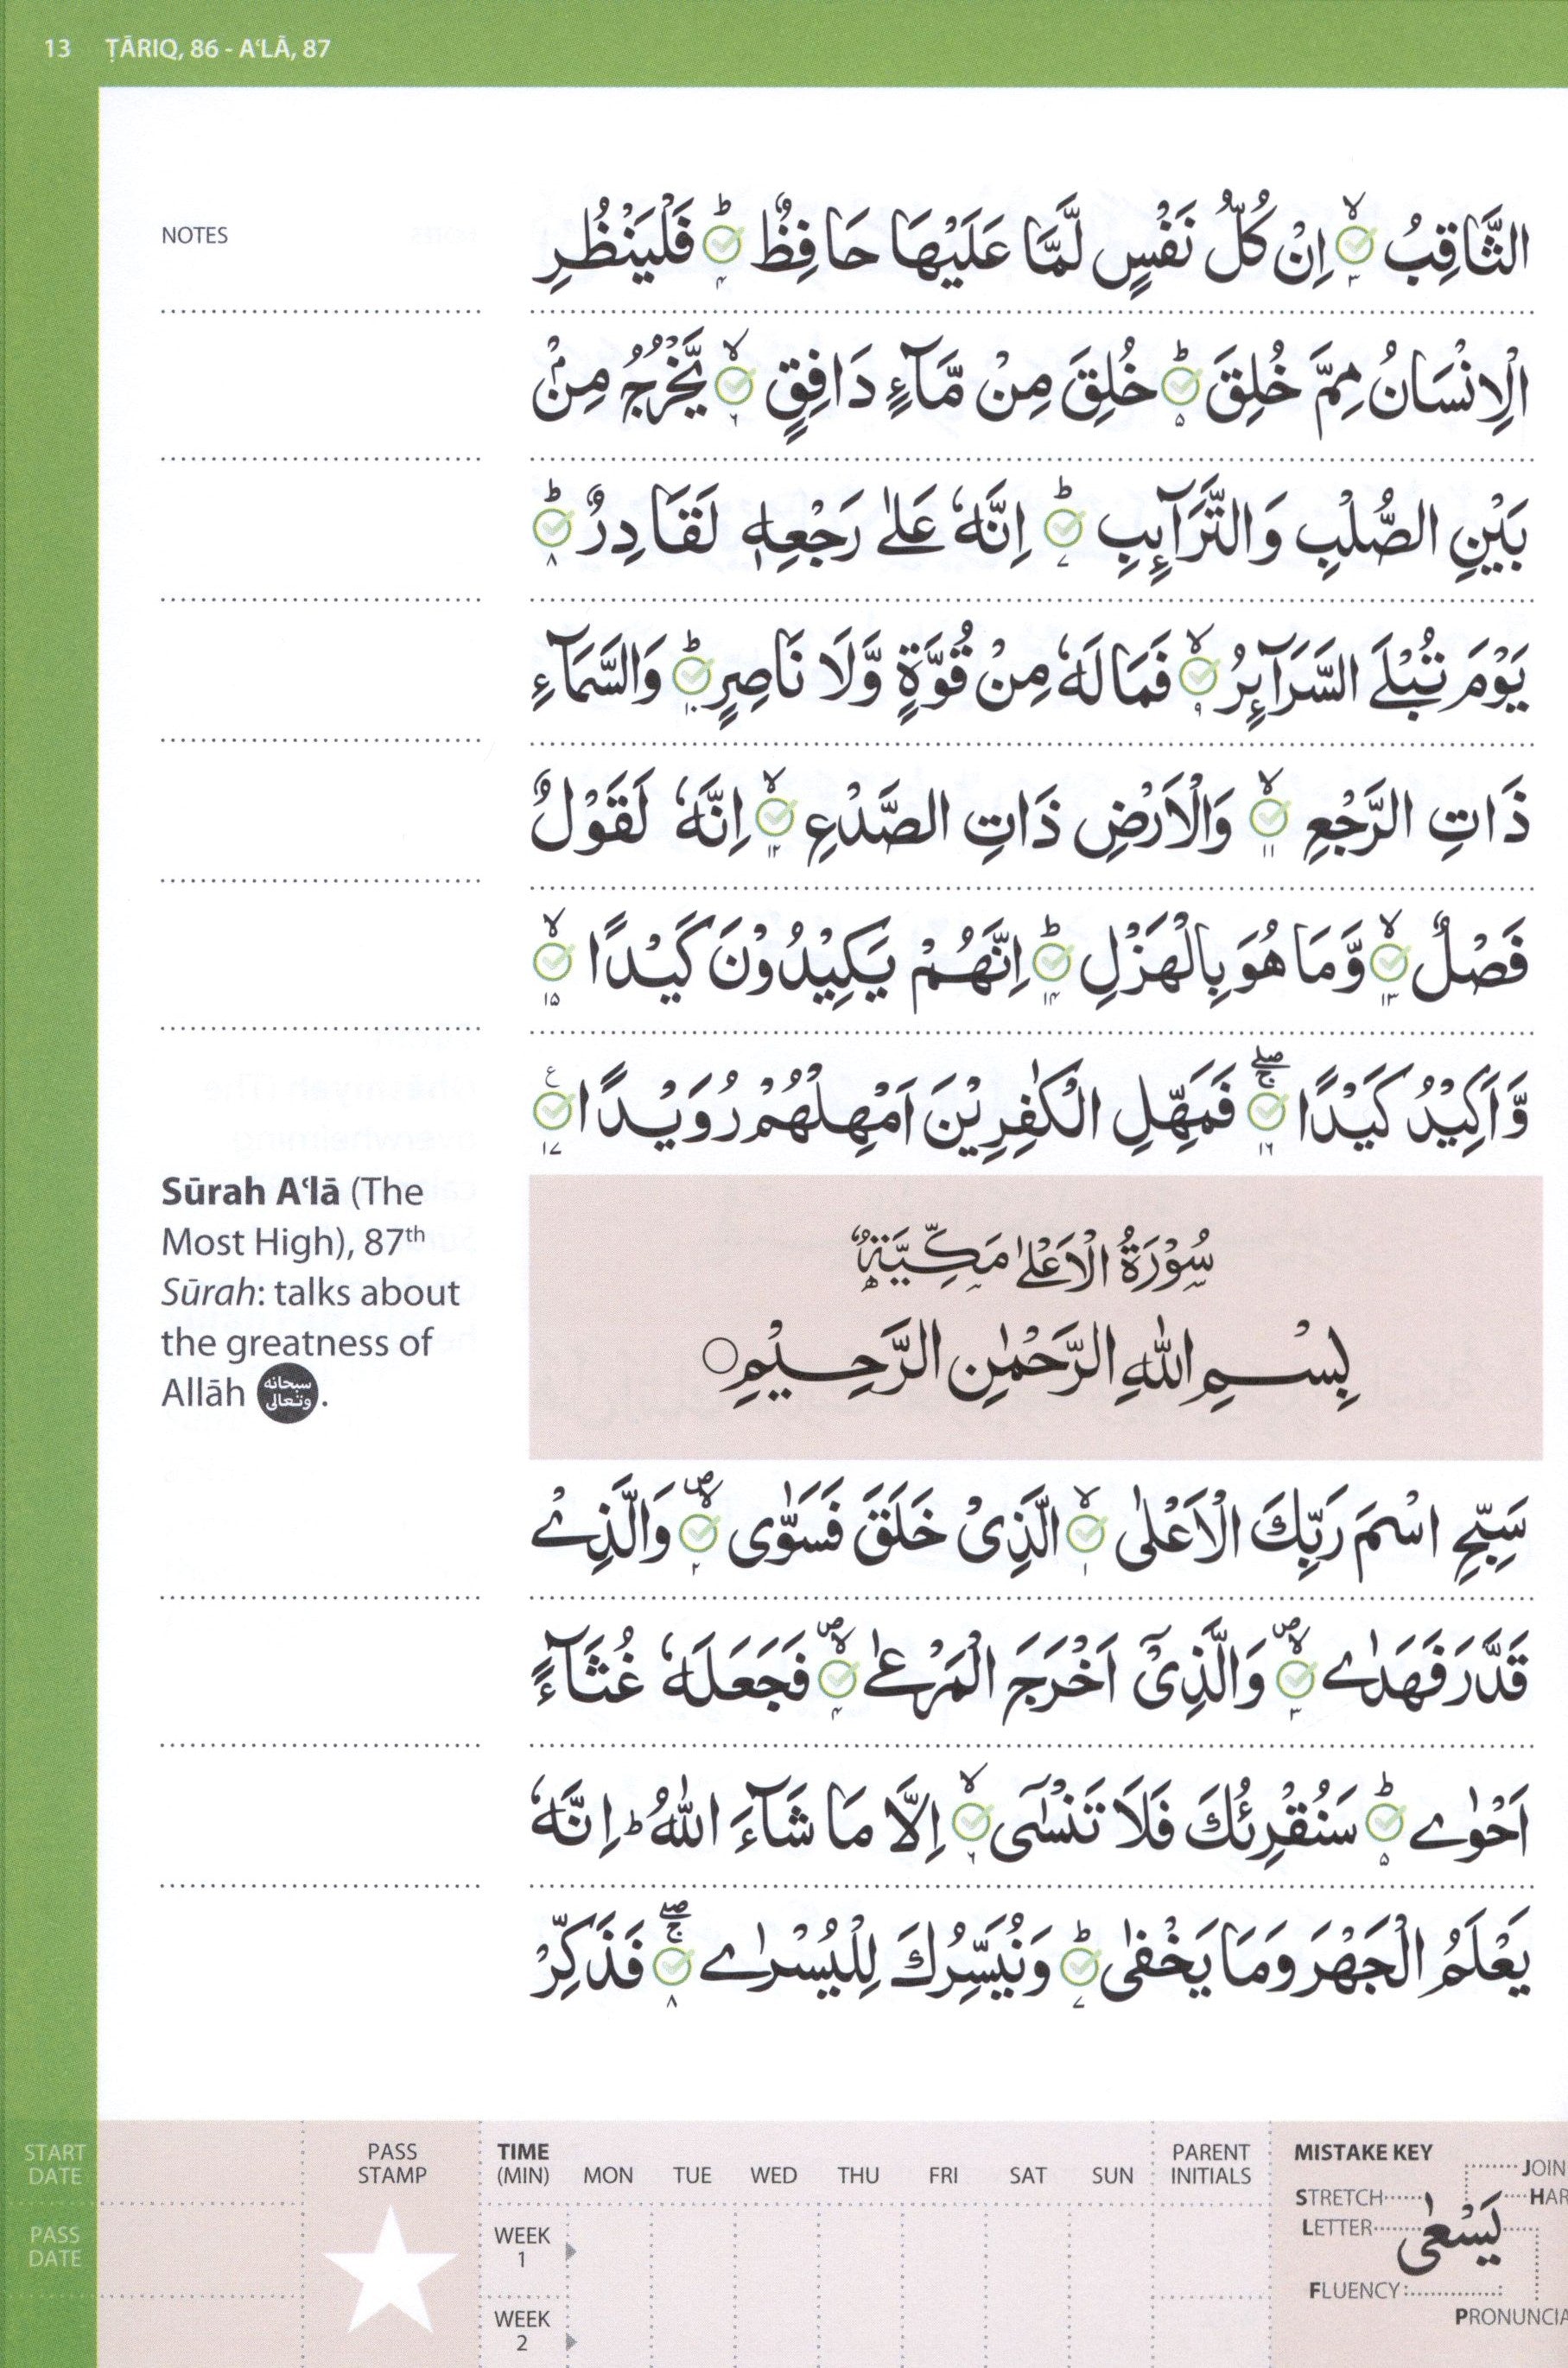 13 ṬĀRIQ, 86 - A‘LĀ, 87
NOTES
الثَّاقِبُ ۙ‏۳ اِنْ كُلُّ نَفْسٍ لَّمَّا عَلَيْهَا حَافِظٌ ؕ‏۴ فَلْيَنْظُرِ
الْاِنْسَانُ مِمَّ خُلِقَ ؕ‏۵ خُلِقَ مِنْ مَّآءٍ دَافِقٍ ۙ‏۶ يَّخْرُجُ مِنْۢ
بَيْنِ الصُّلْبِ وَالتَّرَآىِٕبِ ؕ‏۷ اِنَّهٗ عَلٰى رَجْعِهٖ لَقَادِرٌ ؕ‏۸
يَوْمَ تُبْلَى السَّرَآىِٕرُ ۙ‏۹ فَمَا لَهٗ مِنْ قُوَّةٍ وَّلَا نَاصِرٍ ؕ‏۱۰ وَالسَّمَآءِ
ذَاتِ الرَّجْعِ ۙ‏۱۱ وَالْاَرْضِ ذَاتِ الصَّدْعِ ۙ‏۱۲ اِنَّهٗ لَقَوْلٌ
فَصْلٌ ۙ‏۱۳ وَّمَا هُوَ بِالْهَزْلِ ؕ‏۱۴ اِنَّهُمْ يَكِيْدُوْنَ كَيْدًا ۙ‏۱۵
وَّاَكِيْدُ كَيْدًا ۚۖ‏۱۶ فَمَهِّلِ الْكٰفِرِيْنَ اَمْهِلْهُمْ رُوَيْدًا ع‏۱۷
Sūrah A‘lā (The
Most High), 87th
Sūrah: talks about
the greatness of
Allāh سبحانه وتعالى.
سُوْرَةُ الْاَعْلٰى مَكِّيَّةٌ
بِسْمِ اللّٰهِ الرَّحْمٰنِ الرَّحِيْمِ ○
سَبِّحِ اسْمَ رَبِّكَ الْاَعْلٰى ۙ‏۱ الَّذِىْ خَلَقَ فَسَوّٰى ۪ۙ‏۲ وَالَّذِىْ
قَدَّرَ فَهَدٰى ۪ۙ‏۳ وَالَّذِىْٓ اَخْرَجَ الْمَرْعٰى ۪ۙ‏۴ فَجَعَلَهٗ غُثَآءً
اَحْوٰى ؕ‏۵ سَنُقْرِئُكَ فَلَا تَنْسٰٓى ۙ‏۶ اِلَّا مَا شَآءَ اللّٰهُ ؕ اِنَّهٗ
يَعْلَمُ الْجَهْرَ وَمَا يَخْفٰى ؕ‏۷ وَنُيَسِّرُكَ لِلْيُسْرٰى ۚۖ‏۸ فَذَكِّرْ
START
DATE
PASS
STAMP
TIME
(MIN) MON TUE WED THU FRI SAT SUN
PARENT
INITIALS
MISTAKE KEY
JOIN
STRETCH
HAR
LETTER
يَسْعٰى
PASS
DATE
WEEK
1
FLUENCY
PRONUNCIA
WEEK
2